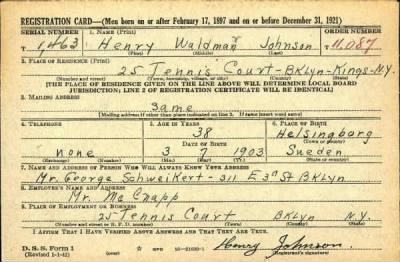 REGISTRATION CARD—(Men born on or after February 17, 1897 and on or before December 31, 1921)
SERIAL NUMBER 1. NAME (Print) ORDER NUMBER
T 1,463 Henry Waldman Johnson 11,087
(First) (Middle) (Last)
2. PLACE OF RESIDENCE (Print)
25 Tennis Court-BKLyn-Kings-N.Y.
(Number and street) (Town, township, village, or city) (County) (State)
(THE PLACE OF RESIDENCE GIVEN ON THE LINE ABOVE WILL DETERMINE LOCAL BOARD
JURISDICTION; LINE 2 OF REGISTRATION CERTIFICATE WILL BE IDENTICAL)
3. MAILING ADDRESS
Same
(Mailing address if other than place indicated on line 2. If same insert word same)
4. TELEPHONE 5. AGE IN YEARS 6. PLACE OF BIRTH
38 Helsingborg
DATE OF BIRTH (Town or county)
none 3 7 1903 Sweden
(Exchange) (Number) (Mo.) (Day) (Yr.) (State or country)
7. NAME AND ADDRESS OF PERSON WHO WILL ALWAYS KNOW YOUR ADDRESS
Mr. George Schweikert-311 E 3rd St BKLyn
8. EMPLOYER'S NAME AND ADDRESS
Mr. Mc Cnapp
9. PLACE OF EMPLOYMENT OR BUSINESS
25 Tennis Court BKLyn N.Y.
(Number and street or R. F. D. number) (Town) (County) (State)
I AFFIRM THAT I HAVE VERIFIED ABOVE ANSWERS AND THAT THEY ARE TRUE.
D. S. S. Form 1
(Revised 1-1-42) GPO 16-21630-1 Henry Johnson
(Registrant's signature)